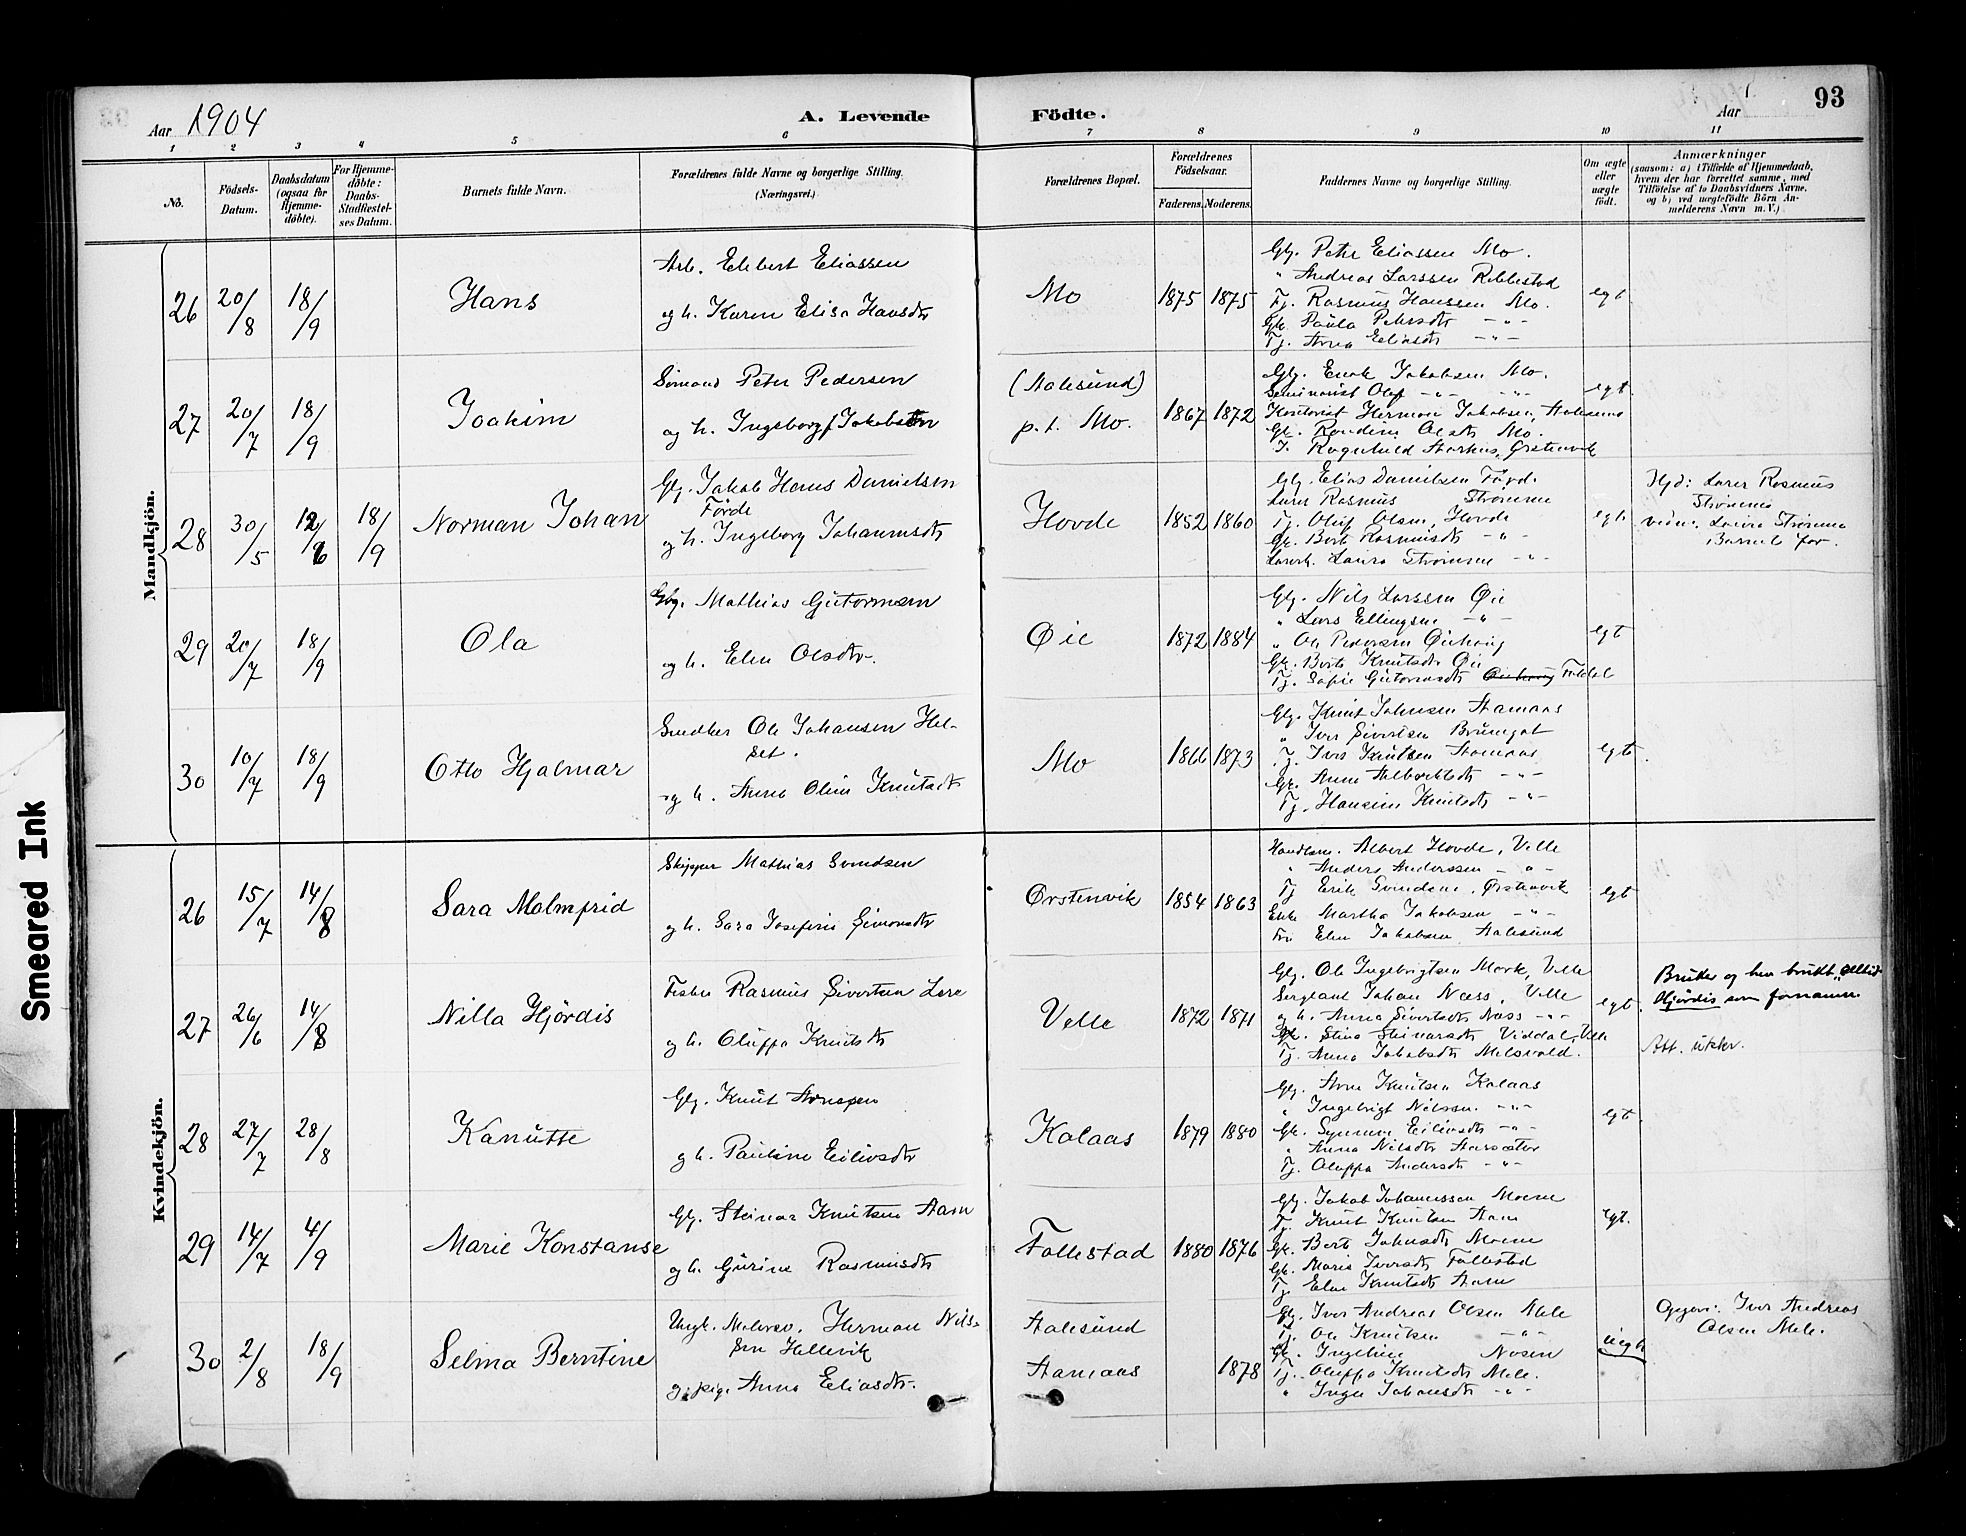 93
Aar 1904
A. Levende Födte.
Aar
1 2 3 4 5 6 7 8 9 10 11
No.
Födsels-Datum.
Daabsdatum (ogsaa for Hjemme-döbte).
For Hjemme-döbte: Daabs-Stadfæstel-ses Datum.
Barnets fulde Navn.
Forældrenes fulde Navne og borgerlige Stilling. (Næringsvei.)
Forældrenes Bopæl.
Forældrenes Födselsaar.
Faderens. Moderens.
Faddernes Navne og borgerlige Stilling.
Om ægte eller uægte födt.
Anmærkninger
(saasom: a) i Tilfælde af Hjemmedaab,
hvem der har forrettet samme, med
Tilföielse af to Daabsvidners Navne.
og b) ved uægtefödte Börn An-
melderens Navn m. V.)
Mandkjön.
26 20/8 18/9 Hans
Arb. Ekbert Eliassen
og h. Karen Elisa Hansdtr
Mo 1875 1875
Gbg. Peter Eliassen Mo.
" Andreas Larssen Ribbestad
Tj. Rasmus Hanssen Mo.
Gk. Paula Petersdtr -"-
Tj. Anna Eliasdtr -"-
egt
27 20/7 18/9 Joakim
Sömand Peter Pedersen
og h. Ingeborg J Jakobsen
(Aalesund)
p.t. Mo. 1867 1872
Gbg. Enok Jakobsen Mo.
Seminarist Olaf -"- -"-
Kontorist Herman Jakobsen, Aalesund
Gk. Rondine Olsdtr Mo.
P. Ragnhild Aarhus, Ørstenvik
egt.
28 30/5 12/6 18/9 Norman Johan
Gbg. Jakob Hans Danielsen
Förde
og h. Ingeborg Johannesdtr
Hovde 1852 1860
Gbg. Elias Danielsen Förde
Lærer Rasmus Strömme
Tj. Oluf Olsen, Hovde
Gk. Berte Rasmusdtr -"-
Lærerk. Laura Strömme -"-
egt.
Hjd: Lærer Rasmus
Strömme
vidne: Laura Strömme
Barnets far.
29 20/7 18/9 Ola
Gbg. Mathias Gutormsen
og h. Elen Olsdtr.
Øie 1872 1884
Gbg. Nils Larssen Øie
" Lars Ellingsen -"-
" Ole Pedersen Øiehaug
Gk. Berte Knutsdtr Øie
Tj. Sofie Gutormsdtr Øiehaug Foldal
egt
30 10/7 18/9 Otto Hjalmar
Snedker Ole Johansen Hel-
set.
og h. Anne Oline Knutsdtr
Mo 1866 1873
Gbg. Knut Johnsen Aamaas
" Iver Sivertsen Brungot
Tj. Iver Knutsen Aamaas
Gk. Anne Albertsdtr -"-
Tj. Hansine Knutsdtr -"-
egt.
Kvindekjön.
26 15/7 14/8 Sara Malmfrid
Skipper Mathias Svendsen
og h. Sara Josefine Simonsdtr
Ørstenvik 1854 1863
Handlsm. Albert Hovde, Velle
" Anders Anderssen -"-
Tj Erik Svendsen, Ørstenvik
Enke Martha Jakobsen -"-
Fru Elen Jakobsen Aalesund
egt
27 26/6 14/8 Nilla Hjördis
Fisker Rasmus Sivertsen Lere
og h. Oluffa Knutsdtr
Velle 1872 1871
Gbg. Ole Ingebrigtsen Mork, Velle
Sergeant Johan Næss, Velle
og h. Anna Sivertsdtr Næss -"-
Gk. Stina Steinarsdtr Viddal, Velle
Tj. Anna Jakobsdtr Melsvold.
egt.
Bruker og har brukt "alltid"
Hjördis som fornamn.
Att. utskr.
28 27/7 28/8 Kanutte
Gbg. Knut Arnesen
og h. Pauline Eilivsdtr
Kolaas 1879 1880
Gbg. Arne Knutsen Kolaas
" Ingebrigt Nilssen -"-
Gk. Synneve Eilivsdtr -"-
" Anna Nilsdtr Aarsæter
Tj. Oluffa Andersdtr -"-
egt.
29 14/7 4/9 Marie Konstanse
Gbg. Steinar Knutsen Aam
og h. Gurine Rasmusdtr
Follestad 1880 1876
Gbg. Jakob Johannessen Moene
Tj. Knut Knutsen Aam
Gk. Berte Johnsdtr Moene
Gk. Marie Iversdtr Follestad
Tj. Elen Knutsdtr Aam
egt.
30 2/8 18/9 Selma Berntine
Ungk. Malersv. Herman Nils-
sen Hallevik
og pige Anna Eliasdtr.
Aalesund
Aamaas 1878
Gbg. Iver Andreas Olsen Mele
Tj. Ole Knutsen -"-
Gk. Ingeline Nosen
Tj. Oluffa Knutsdtr Mele.
" Inga Johansdtr -"-
uegt
Opgiver: Iver Andreas
Olsen Mele.
Smeared Ink